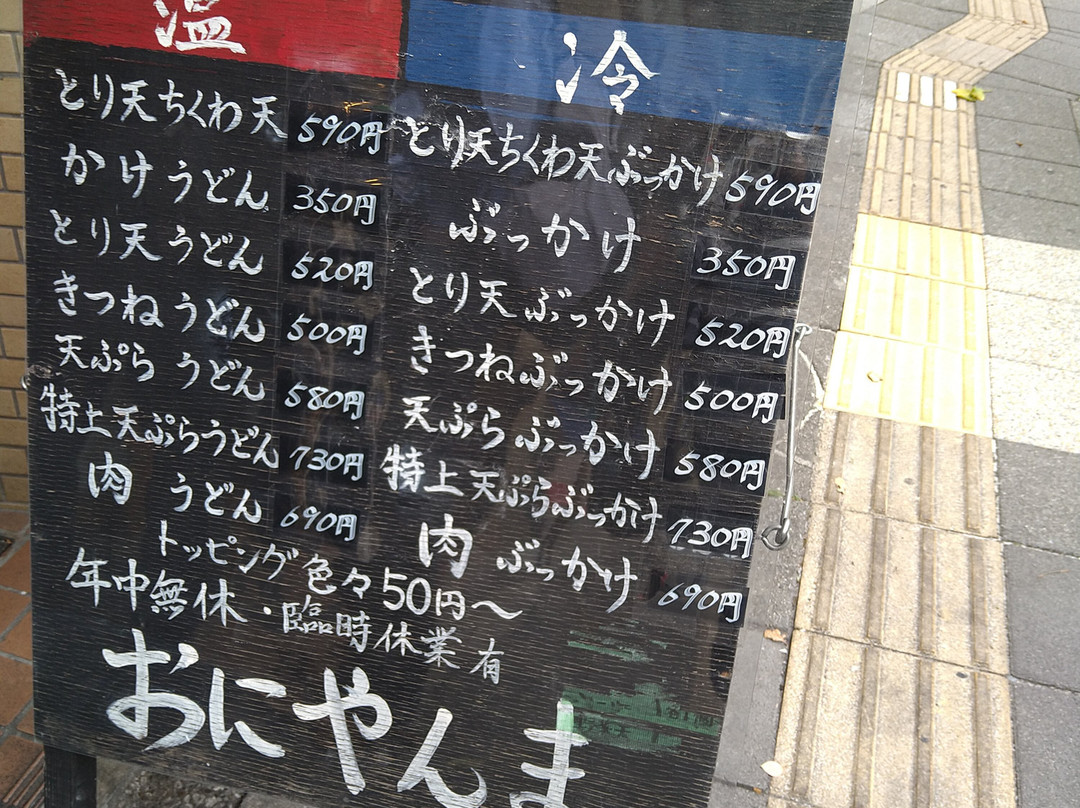 温
とり天ちくわ天 590円
かけうどん 350円
とり天うどん 520円
きつねうどん 500円
天ぷら うどん 580円
特上天ぷらうどん 730円
肉 うどん 690円
冷
とり天ちくわ天ぶっかけ 590円
ぶっかけ 350円
とり天ぶっかけ 520円
きつねぶっかけ 500円
天ぷらぶっかけ 580円
特上天ぷらぶっかけ 730円
肉ぶっかけ 690円
トッピング色々50円〜
年中無休・臨時休業有
おにやんま